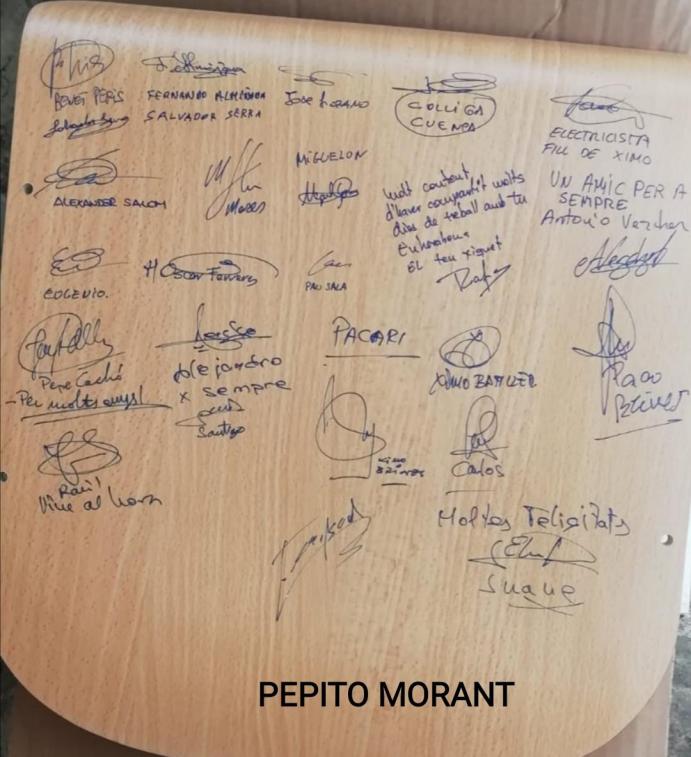 BENET PERIS
FERNANDO ALMIÑANA
SALVADOR SERRA
JOSE LOZANO
COLLIGA
CUENCA
ELECTRICISTA
FILL DE XIMO
ALEXANDER SALOM
Moses
MIGUELON
molt content
d'haver compartit molts
dies de treball amb tu
Enhorabona
El teu xiquet
Rafa
UN AMIC PER A
SEMPRE
Antonio Vercher
EUGENIO.
Oscar Ferrers
PAU SALA
Pepe
- Per molts anys!
Alejandro
x sempre
Santiago
PACARI
XIMO BATALLER
Paco
XIMO
Carlos
Raül
Vine al hora
Moltes Felicitats
PEPITO MORANT